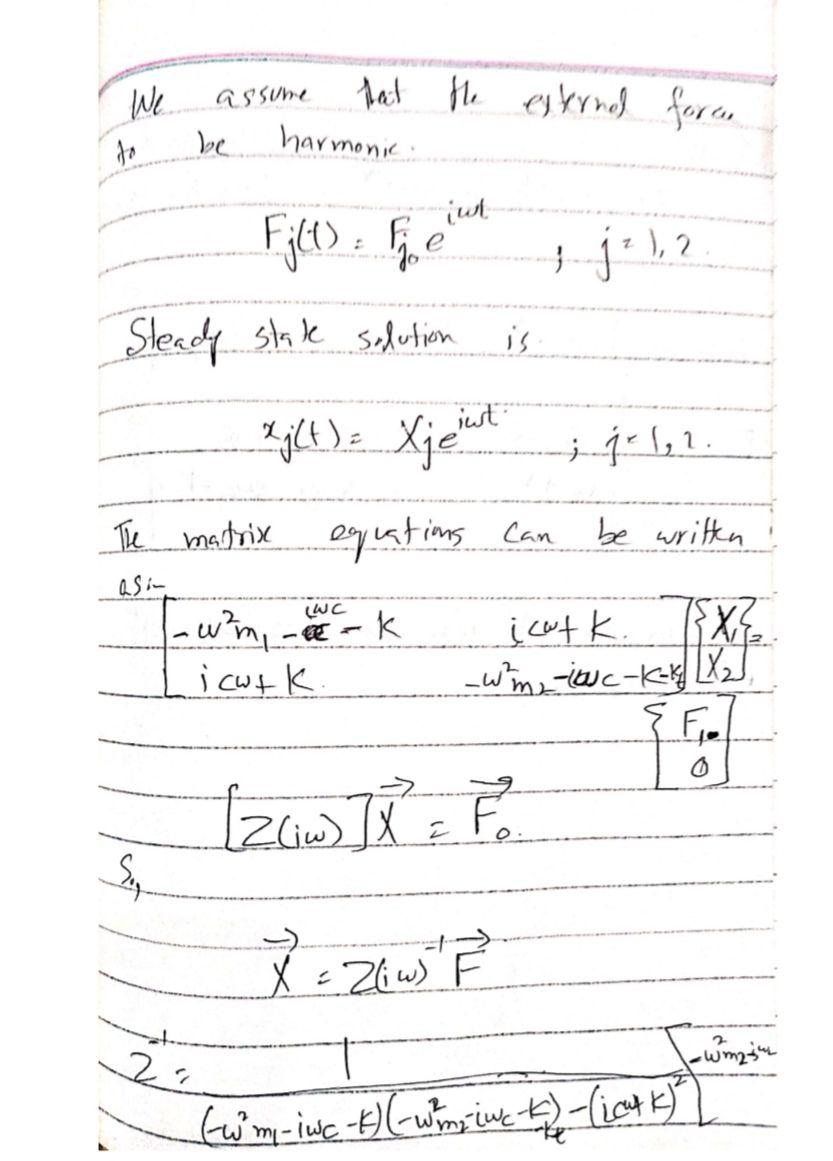 We assume that the external forces
to be harmonic.
Fj(t) = Fj₀ e^{iωt} ; j = 1, 2.
Steady state solution is
xj(t) = Xj e^{iωt} ; j = 1, 2.
The matrix equations can be written
as:-
[-ω²m₁ - iωc - K    icω + K.] {X₁} =
[icω + K.    -ω²m₂ - iωc - K - Kt] {X₂}
{F₁₀
0}
[Z(iω)] X⃗ = F⃗₀.
So,
X⃗ = Z(iω)⁻¹ F⃗
Z⁻¹ = 1 [-ω²m₂-iω
(-ω²m₁ - iωc - K)(-ω²m₂ - iωc - K - Kt) - (icω + K)²